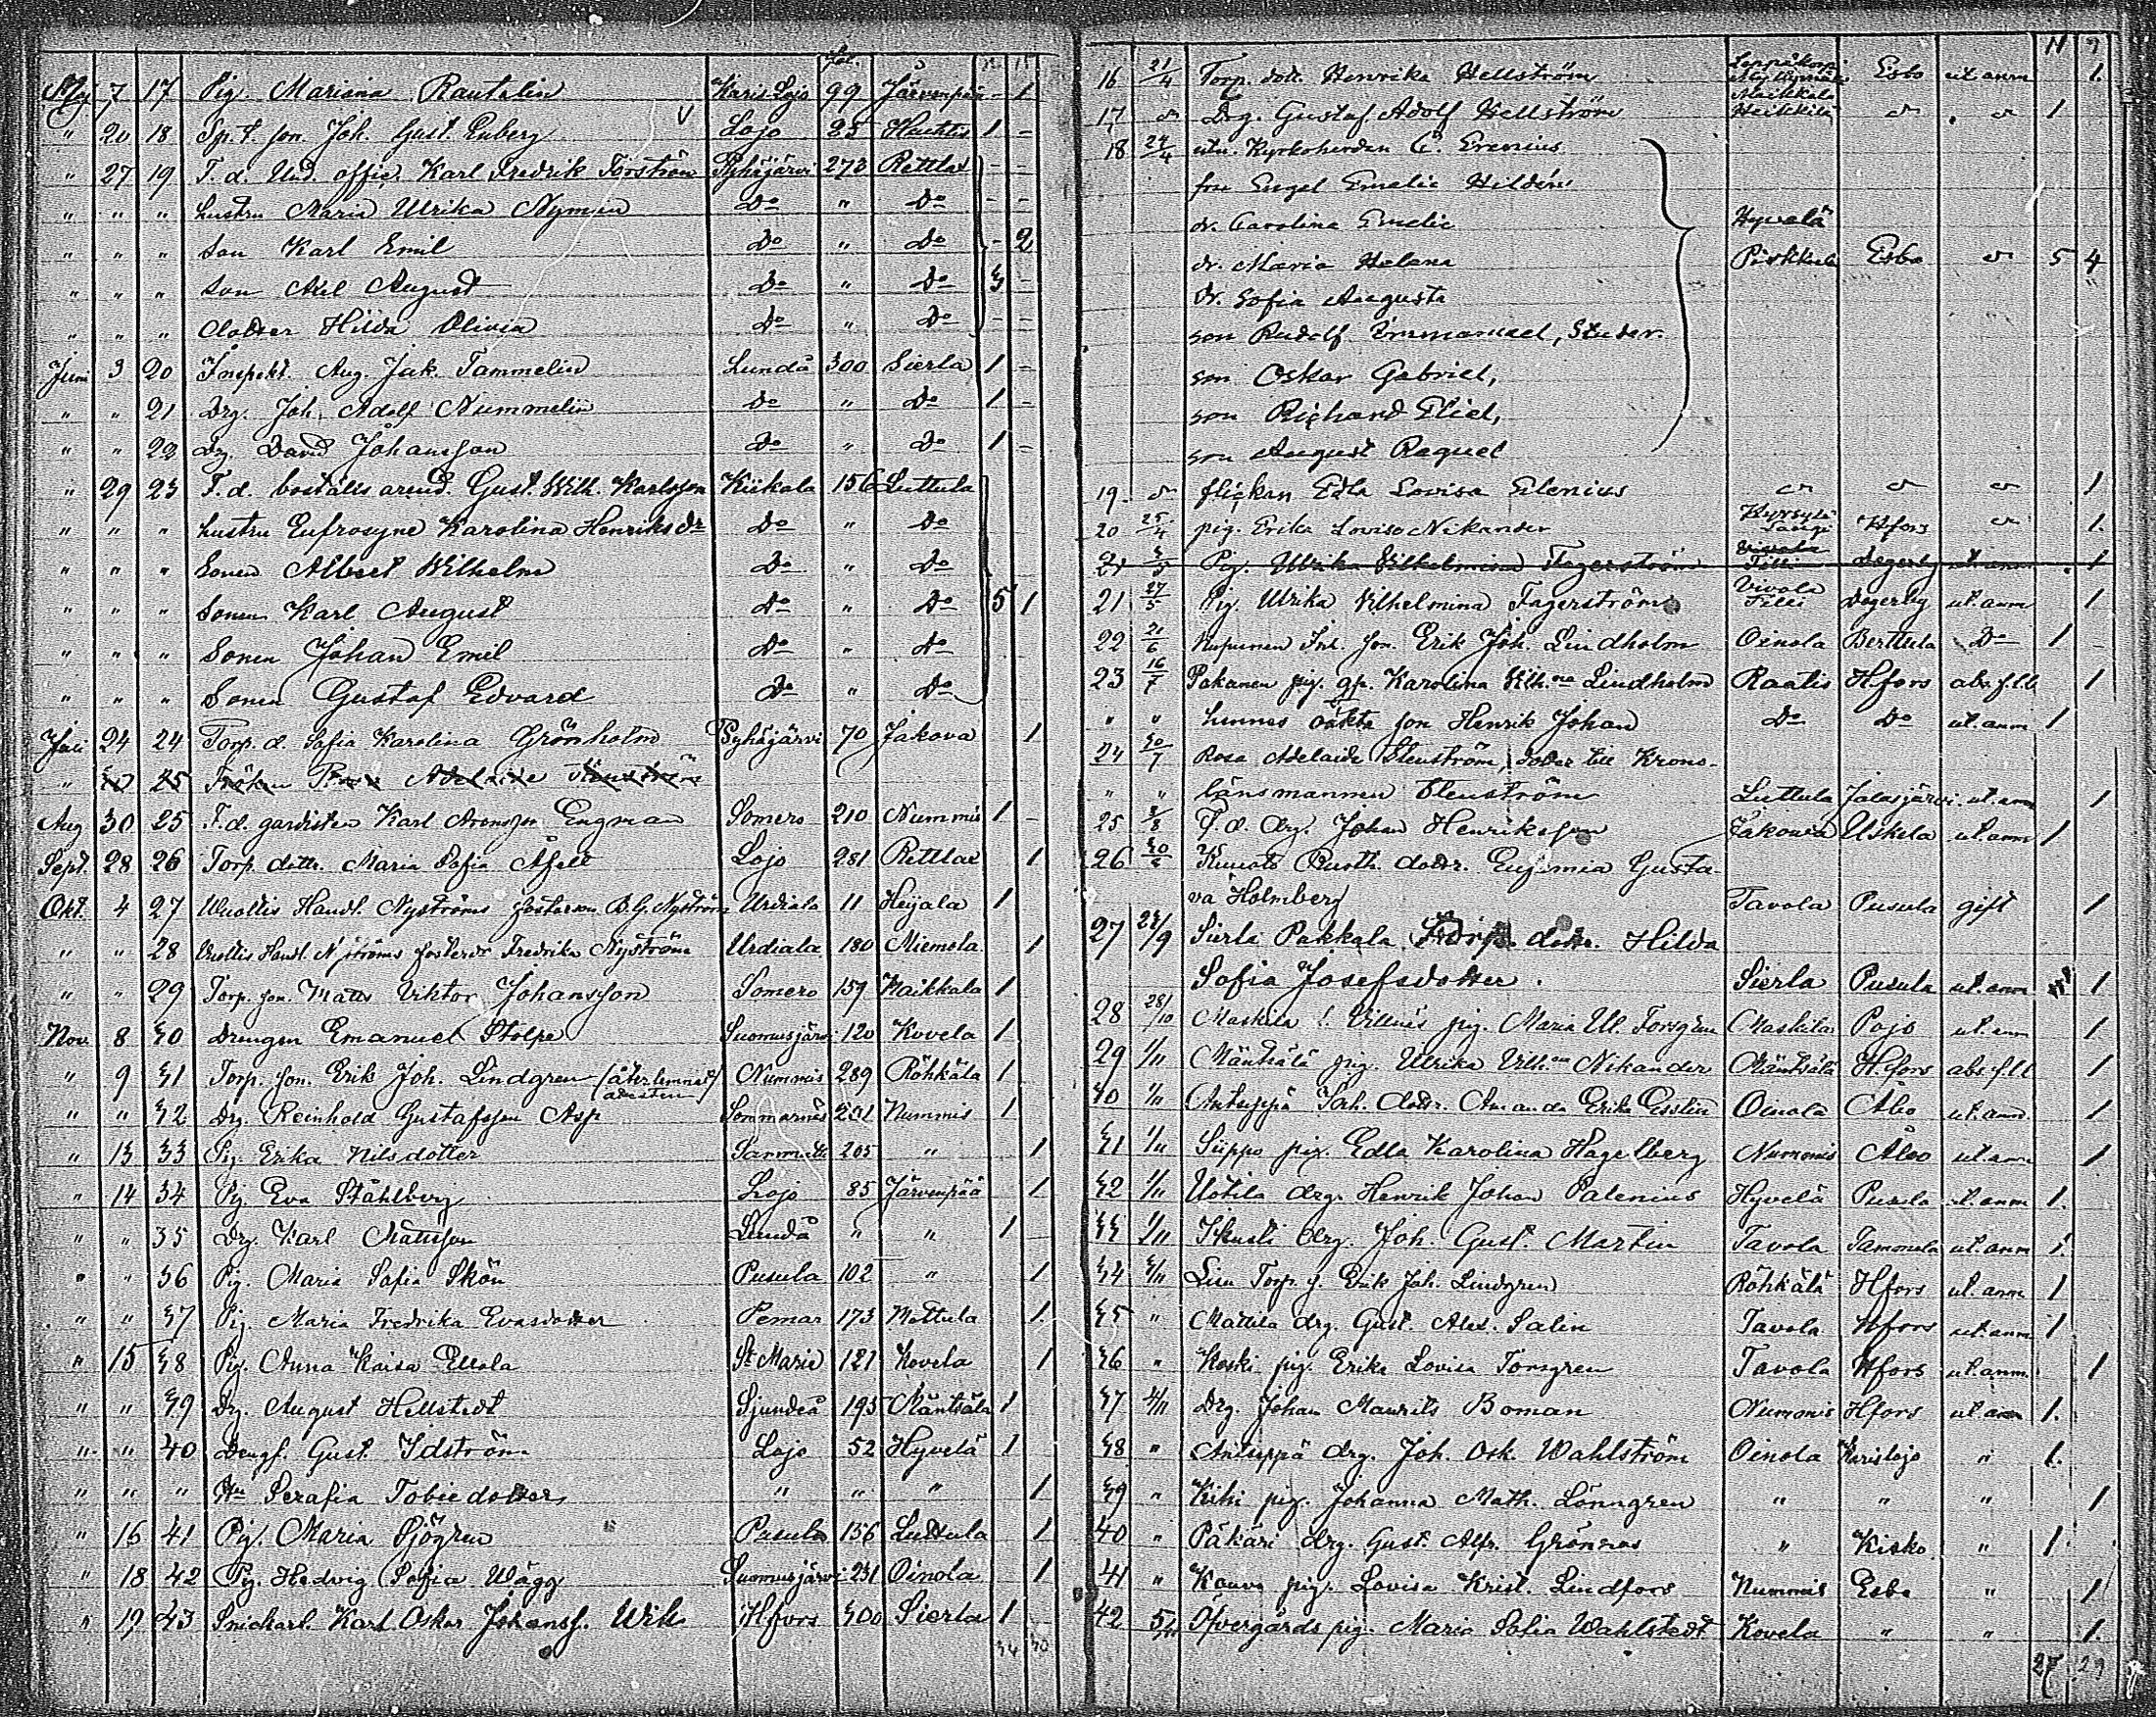 Fol.
Maj 7 17 Pig. Mariana Rautelin Karis Lojo 99 Järvenpää - 1
" 20 18 Sp. t. son. Joh. Gust. Enberg Lojo 25 1 -
" 27 19 F. d. Und. offic. Karl Fredrik Törström Pyhäjärvi 273 Rettlax - -
" " " hustru Maria Ulrika Nyman Do " Do - -
" " " son Karl Emil Do " Do - 2
" " " son Axel August Do " Do 3 -
" " " dotter Hilda Olivia Do " Do - -
Juni 3 20 Inspekt. Aug. Jak. Tammelin Lundå 300 Sierla 1 -
" " 21 Drg. Joh. Adolf Nummelin Do " Do 1 -
" " 22 Drg. David Johansson Do " Do 1 -
" 29 23 F. d. boställs arend. Gust. Wilh. Karlsson Kiikala 156 Luttula
" " " hustru Eufrosyne Karolina Henriksdr Do " Do
" " " Sonen Albert Wilhelm Do " Do
" " " Sonen Karl August Do " Do 5 1
" " " Sonen Johan Emil Do " Do
" " " Sonen Gustaf Edvard Do " Do
Juli 24 24 Torp. d. Sofia Karolina Grönholm Pyhäjärvi 70 Jakova 1
" 25 Fröken Rosa Adelaide Stenström
Aug 30 25 F. d. gardisten Karl Aronsson Engman Somero 210 Nummis 1 -
Sept. 28 26 Torp. dottr. Maria Sofia Lojo 281 Rettlax 1
Okt. 4 27 Wuollis Handl. Nyströms fosterson B. G. Nyström Urdiala 11 Heijala 1
" " 28 Wuollis Handl. Nyströms fosterdr Fredrika Nyström Urdiala 180 Miemola 1
" " 29 Torp. son. Matts Viktor Johansson Somero 159 Maikkala 1
Nov. 8 30 Drengen Emanuel Stolpe Suomusjärvi 120 Kovela 1
" 9 31 Torp. son. Erik Joh. Lindgren (återlemnat attesten) Nummis 289 Röhkälä 1
" " 32 Drg. Reinhold Gustafsson Asp Sommarnäs 201 Nummis 1
" 13 33 Pig. Erika Nilsdotter Sammatti 205 " 1
" 14 34 Pig Eva Ståhlberg Lojo 85 Järvenpää 1
" " 35 Drg. Karl Mattsson Lundå " " 1
" " 36 Pig. Maria Sofia Skön Pusula 102 " 1
" " 37 Pig. Maria Fredrika Evasdotter Pemar 173 Mettula 1.
" 15 38 Pig. Anna Kaisa Ellola St Marie 121 Kovela 1
" " 39 Drg. August Hellstedt Sjundeå 195 Mäntsälä 1
" " 40 Drengf. Gust. Idström Lojo 52 Hyvelä 1
" " " Hu Serafia Tobiedotter " " " 1
" 16 41 Pig. Maria Sjögren Pusula 156 Luttula 1
" 18 42 Pig. Hedvig Sofia Wägg Suomusjärvi 231 Oinola 1
" 19 43 Snickarl. Karl Oskar Johanss. Wik Hfors 300 Sierla 1
34 30
16 21/4 Torp. dott. Henrika Hellström Leppäkorpi Esbo ut. anm 1.
17 Drg. Gustaf Adolf Hellström Maikkala Heikkilä 1
18 24/4 utn. Kyrkoherden C. Grenius
fru Engel Emelie Hildén
dr. Carolina Emelie Hyvelä
dr. Maria Helena Pirkkula Esbo 5 4
dr. Sofia Augusta
son Rudolf Emmanuel, Studer.
son Oskar Gabriel,
son Richard Eliel,
son August Raguel
19. flickan Edla Lovisa Elenius 1
20 25/4 pig. Erika Lovisa Nikander Hfors 1.
21 Pig. Ulrika Vilhelmina Fagerström Filli Degerby ut. anm 1
21 27/5 Pig. Ulrika Vilhelmina Fagerström Vivola Filli Degerby ut. anm 1
22 21/6 Inh. son. Erik Joh. Lindholm Oinola Berttula Do 1 -
23 16/7 Pakanen pig. gp. Karolina Wilh.na Lindholm Raatis H.fors abs. f.l.b 1
" " hennes oäkta son Henrik Johan Do Do ut. anm 1
24 30/7 Rosa Adelaide Stenström, doter till Krono-
" " länsmannen Stenström Luttula Jalasjärvi ut. anm 1
25 3/8 F. d. drg. Johan Henriksson Jakowa Uskela ut. anm 1
26 Rusth. dottr. Eufemia Gusta-
va Holmberg Tavola Pusula gift 1
27 28/9 Sierla Pakkala Torp. dottr. Hilda
Sofia Josefsdotter. Sierla Pusula ut. anm 1
28 28/10 Maskila l. Villnäs pig. Maria Ul. Forsgren Maskila Pojo ut. anm 1
29 1/11 Mäntsälä pig. Ulrika Vilh.na Nikander Mäntsälä H.fors abs. f.l.l 1
30 1/11 Anttuppä Inh. dottr. Amanda Erika Esslin Oinola Åbo ut. anm 1
31 1/11 Siippo pig. Edla Karolina Hagelberg Nummis Åbo ut. anm 1
32 1/11 Uotila drg. Henrik Johan Palenius Hyvelä Pusula ut. anm 1.
33 1/11 Ikusti drg. Joh. Gust. Martin Tavola Tamonela ut. anm 1.
34 3/11 Liu Torp. s. Erik Joh. Lindgren Röhkälä Hfors ut. anm 1
35 " Mattila drg. Gust. Alex. Salin Tavola Hfors ut. anm 1
36 " Koski pig. Erika Lovisa Torsgren Tavola Hfors ut. anm. 1
37 4/11 Drg. Johan Maurits Boman Nummis Hfors ut. anm 1.
38 " Anttuppä drg. Joh. Osk. Wahlström Oinola Karislojo " 1.
39 " Kihi pig. Johanna Math. Lönngren " " " 1
40 " Päkäri drg. Gust. Alfr. Grönroos " Kisko " 1.
41 " Kouvo pig. Lovisa Krist. Lindfors Nummis Esbo " 1
42 5/11 Öfvergårds pig. Maria Sofia Wahlstedt Kovela " " 1.
27 29